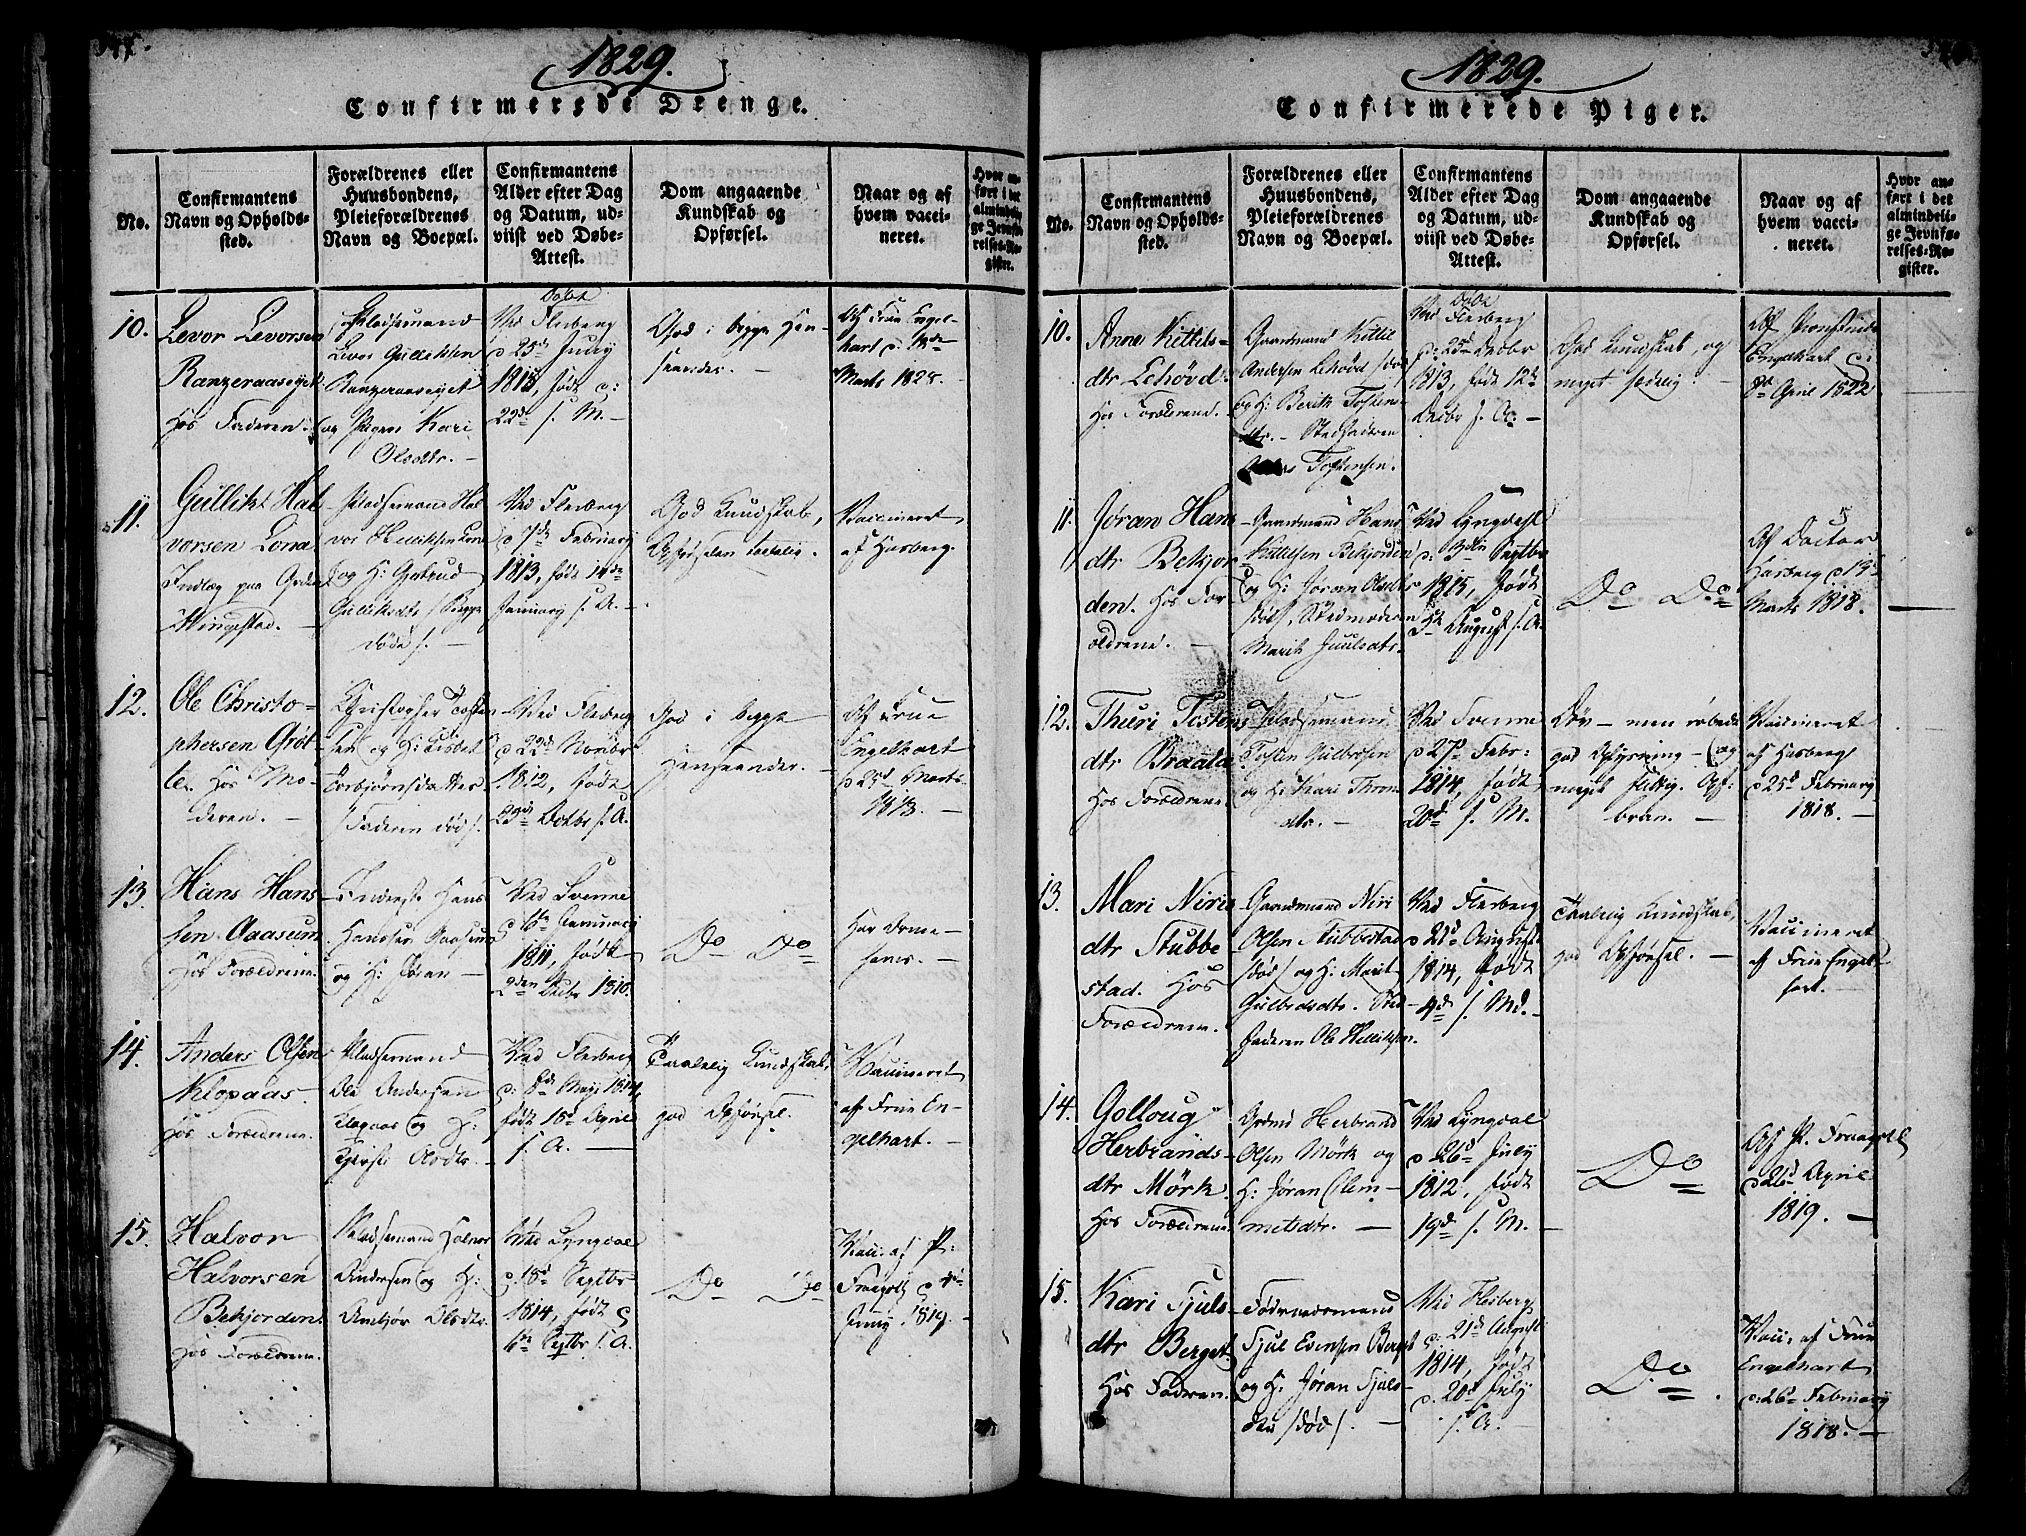 1829.
Confirmerede Drenge.
No.
Confirmantens
Navn og Opholds-
sted.
Forældrenes eller
Huusbondens,
Pleieforældrenes
Navn og Boepæl.
Confirmantens
Alder efter Dag
og Datum, ud-
viist ved Døbe-
Attest.
Dom angaaende
Kundskab og
Opførsel.
Naar og af
hvem vacci-
neret.
Hvor an-
ført i det
almindeli-
ge Jevnfø-
relses-Re-
gister.
10.
Levor Levorsen
Ranzeraaseyet
Hos Faderen
Pladsemand
Levor Gulliksen
Ranzeraaseyet
og Pigen Kari
Olsdtr. -
Døbt
Ved Flesberg
d 25de July
1813, født d:
22de s. M. -
God i begge Hen-
seender. -
Af Frue Engel-
hart d. 18de
Marts 1825. -
11.
Gullik Hal-
vorsen Lona
Indlæg paa Grden
Wingestad. -
Pladsemand Hal-
vor Helliksen Lona
og H: Gubrud
Gulliksdtr / Begge
døde /. -
Ved Flesberg
d 7de February
1813, født 14de
January s. A. -
God Kundskab,
Opførselen taalelig.
Vaccineret
af Hasberg.
12.
Ole Christo-
phersen Grøt-
te. Hos Mo-
deren. -
Christopher Tosten-
sen og H: Lisbet
Torbjørnsdatter
/ Faderen død /.
Ved Flesberg
d 22de Novbr
1812, født
23de Octbr s. A.
God i begge
Henseender. -
Af Frue
Engelhart
d 25de Marts
1813. -
13.
Hans Hans-
sen Aasum
Hos Forældrene.
Inderst Hans
Hansen Aasum
og H: Jøran -
Ved Svenne
d 6te January
1811, født
2den Decbr 1810.
Do Do
Har Børne-
13.
14.
Anders Olsen
Klopaas.
Hos Forældrene.
Pladsemand
Ole Andersen
Klopaas og H:
Kjersti Olsdtr. -
Ved Flesberg
d: 8de Maji 1814,
født 18de April
s. A. -
Taalelig Kundskab,
god Opførsel.
Vaccineret
af Frue En-
gelhart. -
15.
Halvor
Halvorsen
Bekjorden.
Hos Forældrene.
Pladsemand Halvor
Andersen og H:
Anchør Olsdtr.
Ved Lyngdal
d. 18de Septbr
1814, født d
6te Septbr s. A.
Do Do
Vacc. af P.
July 1819. -
1829.
Confirmerede Piger.
No.
Confirmantens
Navn og Opholds-
sted.
Forældrenes eller
Huusbondens,
Pleieforældrenes
Navn og Boepæl.
Confirmantens
Alder efter Dag
og Datum, ud-
viist ved Døbe-
Attest.
Dom angaaende
Kundskab og
Opførsel.
Naar og af
hvem vacci-
neret.
Hvor an-
ført i det
almindeli-
ge Jevnfø-
relses-Re-
gister.
10.
Anne Kittils-
dtr Lehovd.
Hos Forældrene.
Gaardmand Kittil
Andersen Lehovd / død /
og H: Berith Tostens-
dtr. - Stedfaderen
Tostensen.
Døbt
Ved Flesberg
d: 25de Decbr
1813, født 12te
Decbr s. A. -
God Kundskab, og
meget sædelig. -
Engelhart d:
April 1822
11.
Jøran Hans-
dtr Bekjor-
den. Hos For-
ældrene.
Gaardmand Hans
Kittilsen Bekjorden
og H: Jøran Olsdtr
/ død /, Stedmoderen
Marith Juulsdtr.
Ved Lyngdal
d: 3die Septbr
1815, født
August s. A.
Do Do
Af Doctor
Hasberg d 19de
Marts 1818. -
12.
Thuri Tostens-
dtr Braata
Hos Forældrene
Pladsemand
Tosten Gulbrsen
og H: Kari Thron
dtr. -
Ved Svenne
d 27de Febr:
1814, født
20de s. M.
Døv - men røbede
god Oplysning - og
meget flittig.
Vaccineret
af Hasberg
d 25de February
1818. -
13.
Mari Niris-
dtr Stubbe-
stad. Hos
Forældrene.
Gaardmand Niri
Olsen Stubbestad
/ død / og H: Marit
Gulbrdsdtr. Sted-
faderen Ole Helliksen.
Ved Flesberg
d 21de August
1814, født
4de s. Md.
Taalelig Kundskab,
god Opførsel. -
Vaccineret
af Frue Engel-
hart. -
14.
Golloug
Herbrands-
dtr Mørk
Hos Forældrene.
Grdmd Herbrand
Olsen Mørk og
H: Jøran Clem-
metsdtr. -
Ved Lyngdal
d 26de July
1812, født
19de s. M. -
Do
d 26de April
1819. -
15.
Kari Sjuls-
dtr Berget.
Hos Faderen.
Føderaadsmand
Sjul Evensen Berget
og H. Jøran Sjuls-
dtr / død /. -
Ved Flesberg
d: 21de August
1814, født
d. 20de July
s. A. -
Do
Vacc. af Frue
Engelhart
d: 26de February
1818. -